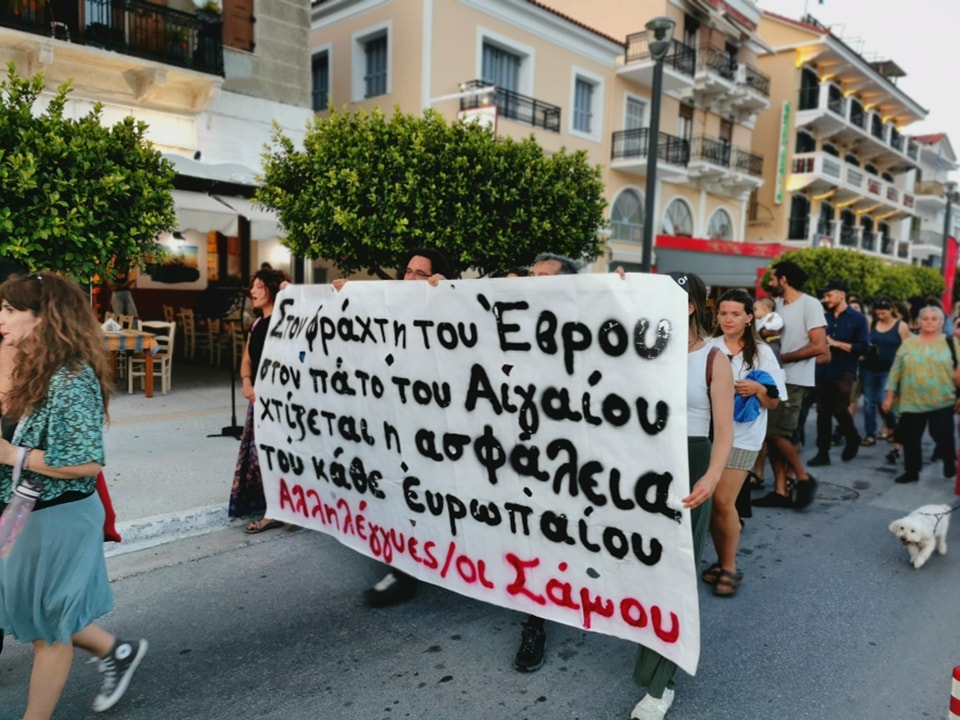 Στον φράχτη του Έβρου
στον πάτο του Αιγαίου
χτίζεται η ασφάλεια
του κάθε ευρωπαίου
Αλληλέγγυες/οι Σάμου